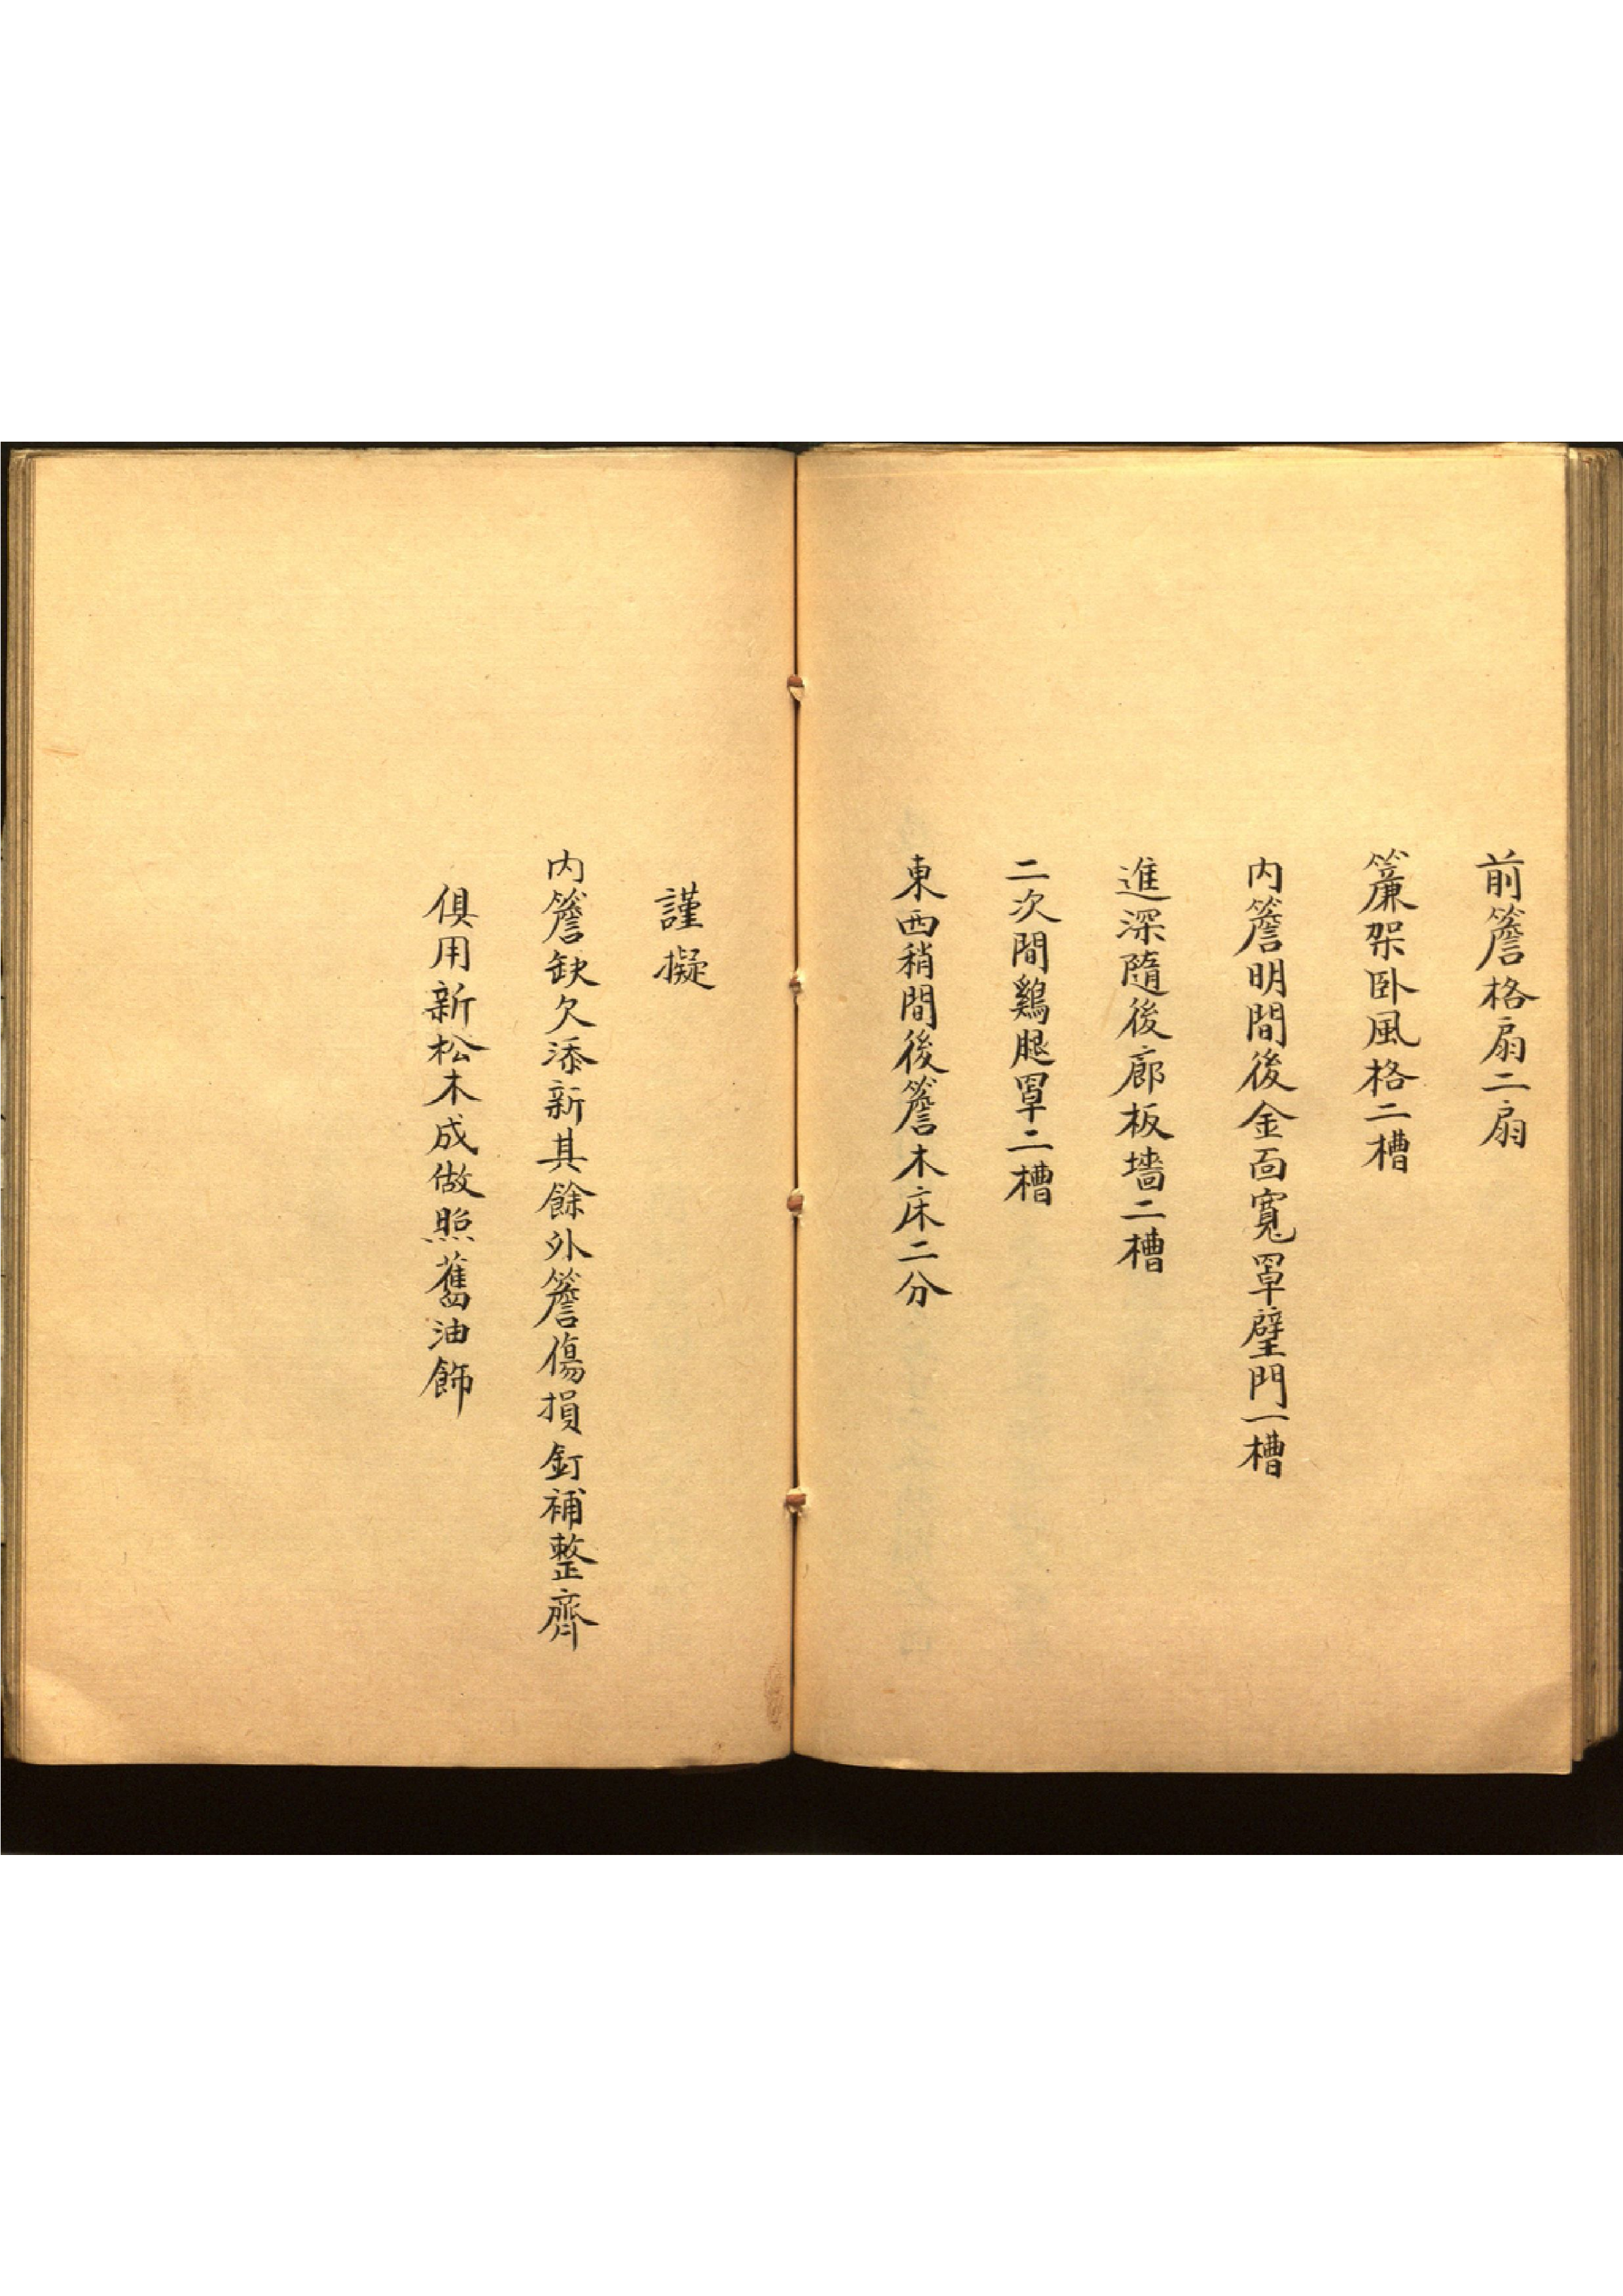 前簷格扇二扇
簾架卧風格二槽
内簷明間後金面寬罩壁門一槽
進深隨後廊板墻二槽
二次間鷄腿罩二槽
東西稍間後簷木床二分
謹擬
内簷缺欠添新其餘外簷傷損釘補整齊
俱用新松木成做照舊油飾